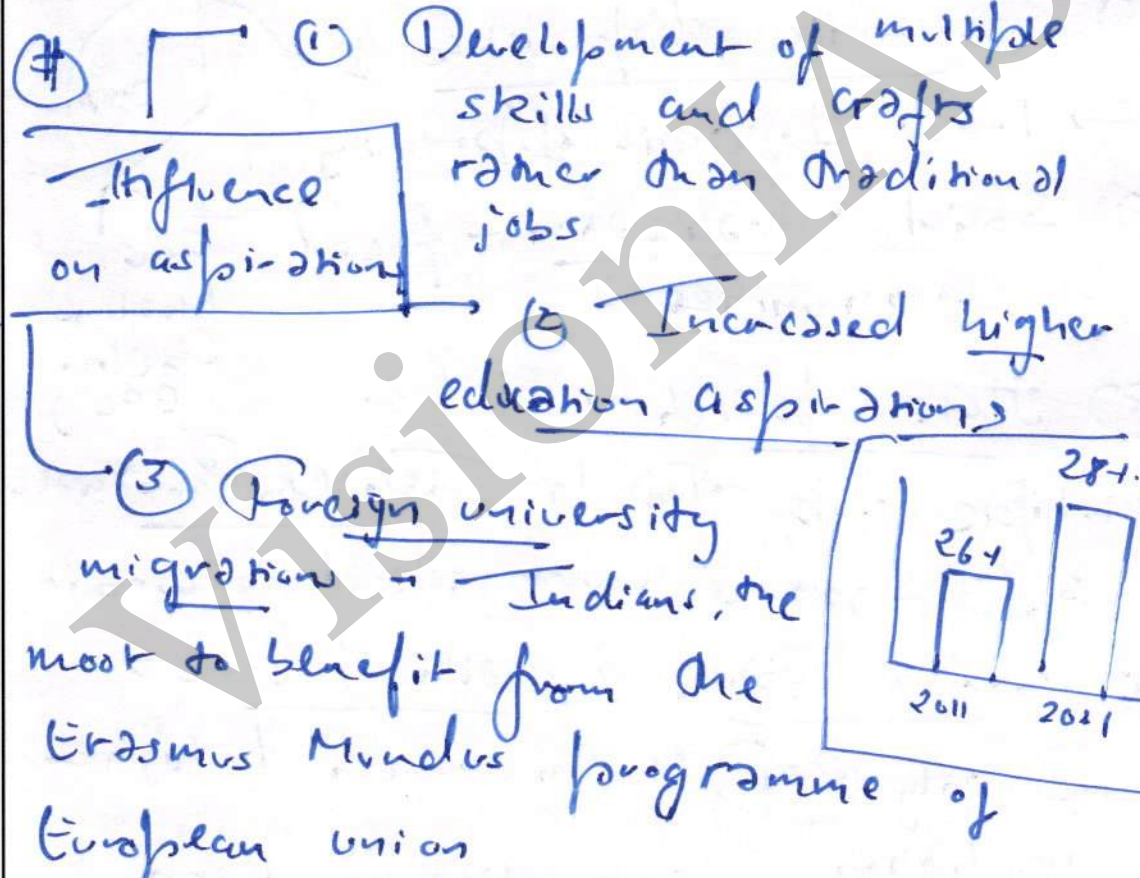 # ① Development of multiple
skills and crafts
rather than traditional
jobs
Influence
on aspirations
② Increased higher
education aspirations
③ Foreign university
migration - Indians, the
most to benefit from the
Erasmus Mundus programme of
European union
28%
26%
2011 2021
VisionIAS